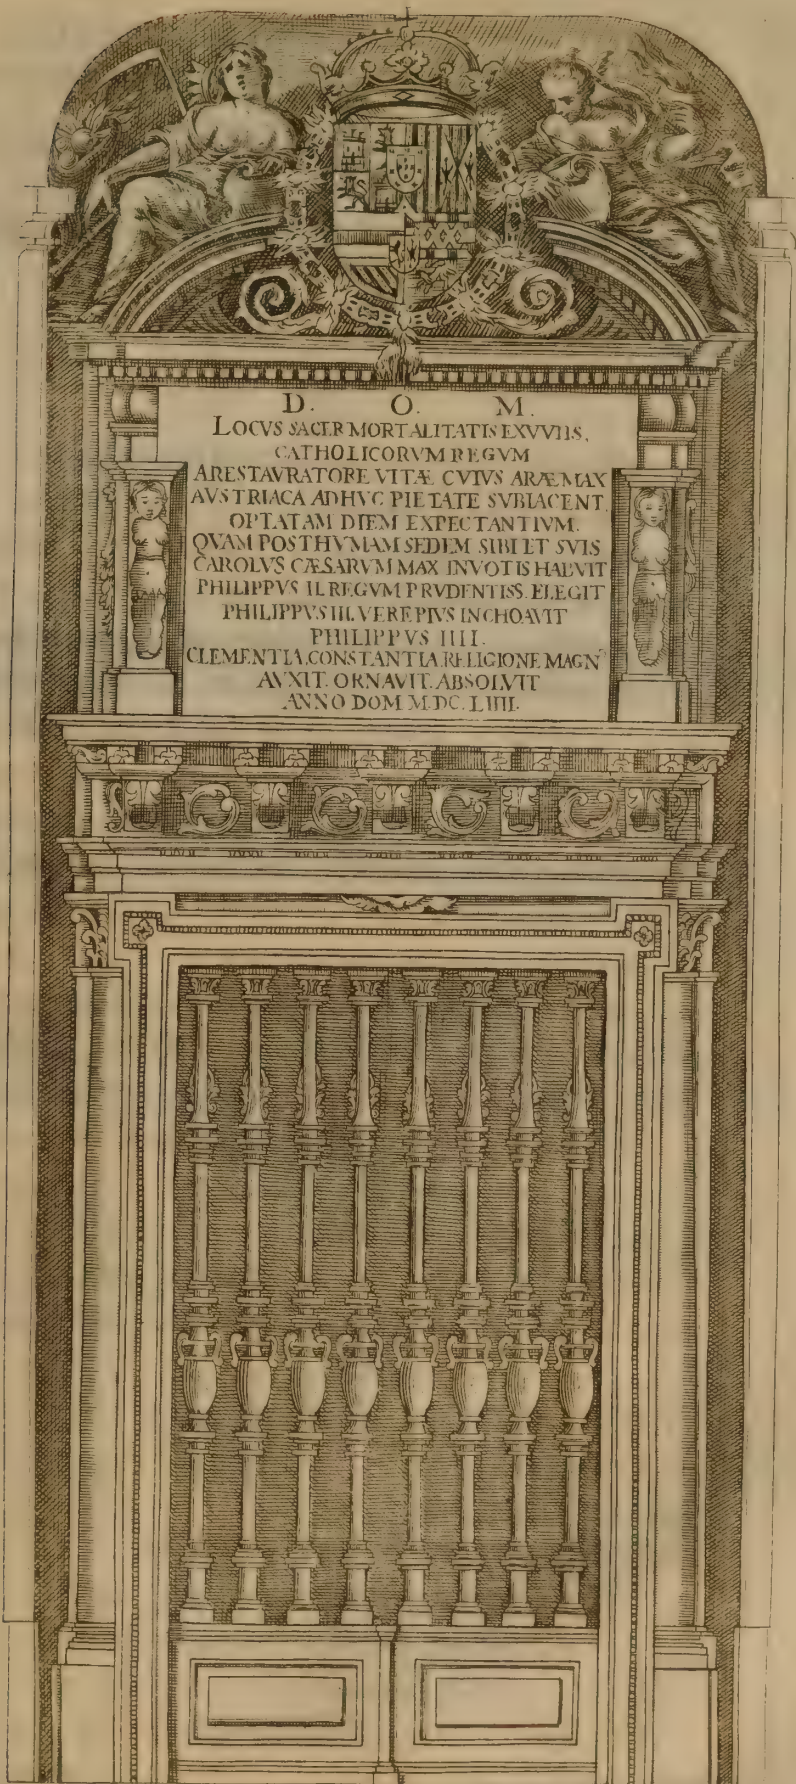 D. O. M.
LOCVS SACER MORTALITATIS EXVVIIS,
CATHOLICORVM REGVM
ARESTAVRATORE VITÆ CVIVS ARÆ MAX
AVSTRIACA ADHVC PIETATE SVBIACENT.
OPTATAM DIEM EXPECTANTIVM.
QVAM POSTHVMAM SEDEM SIBI ET SVIS
CAROLVS CÆSARVM MAX INVOTIS HABVIT
PHILIPPVS II. REGVM PRVDENTISS. ELEGIT
PHILIPPVS III. VERE PIVS INCHOAVIT
PHILIPPVS IIII.
CLEMENTIA. CONSTANTIA. RELIGIONE. MAGNˢ
AVXIT. ORNAVIT. ABSOLVIT
ANNO DOM M.DC.LIIII.